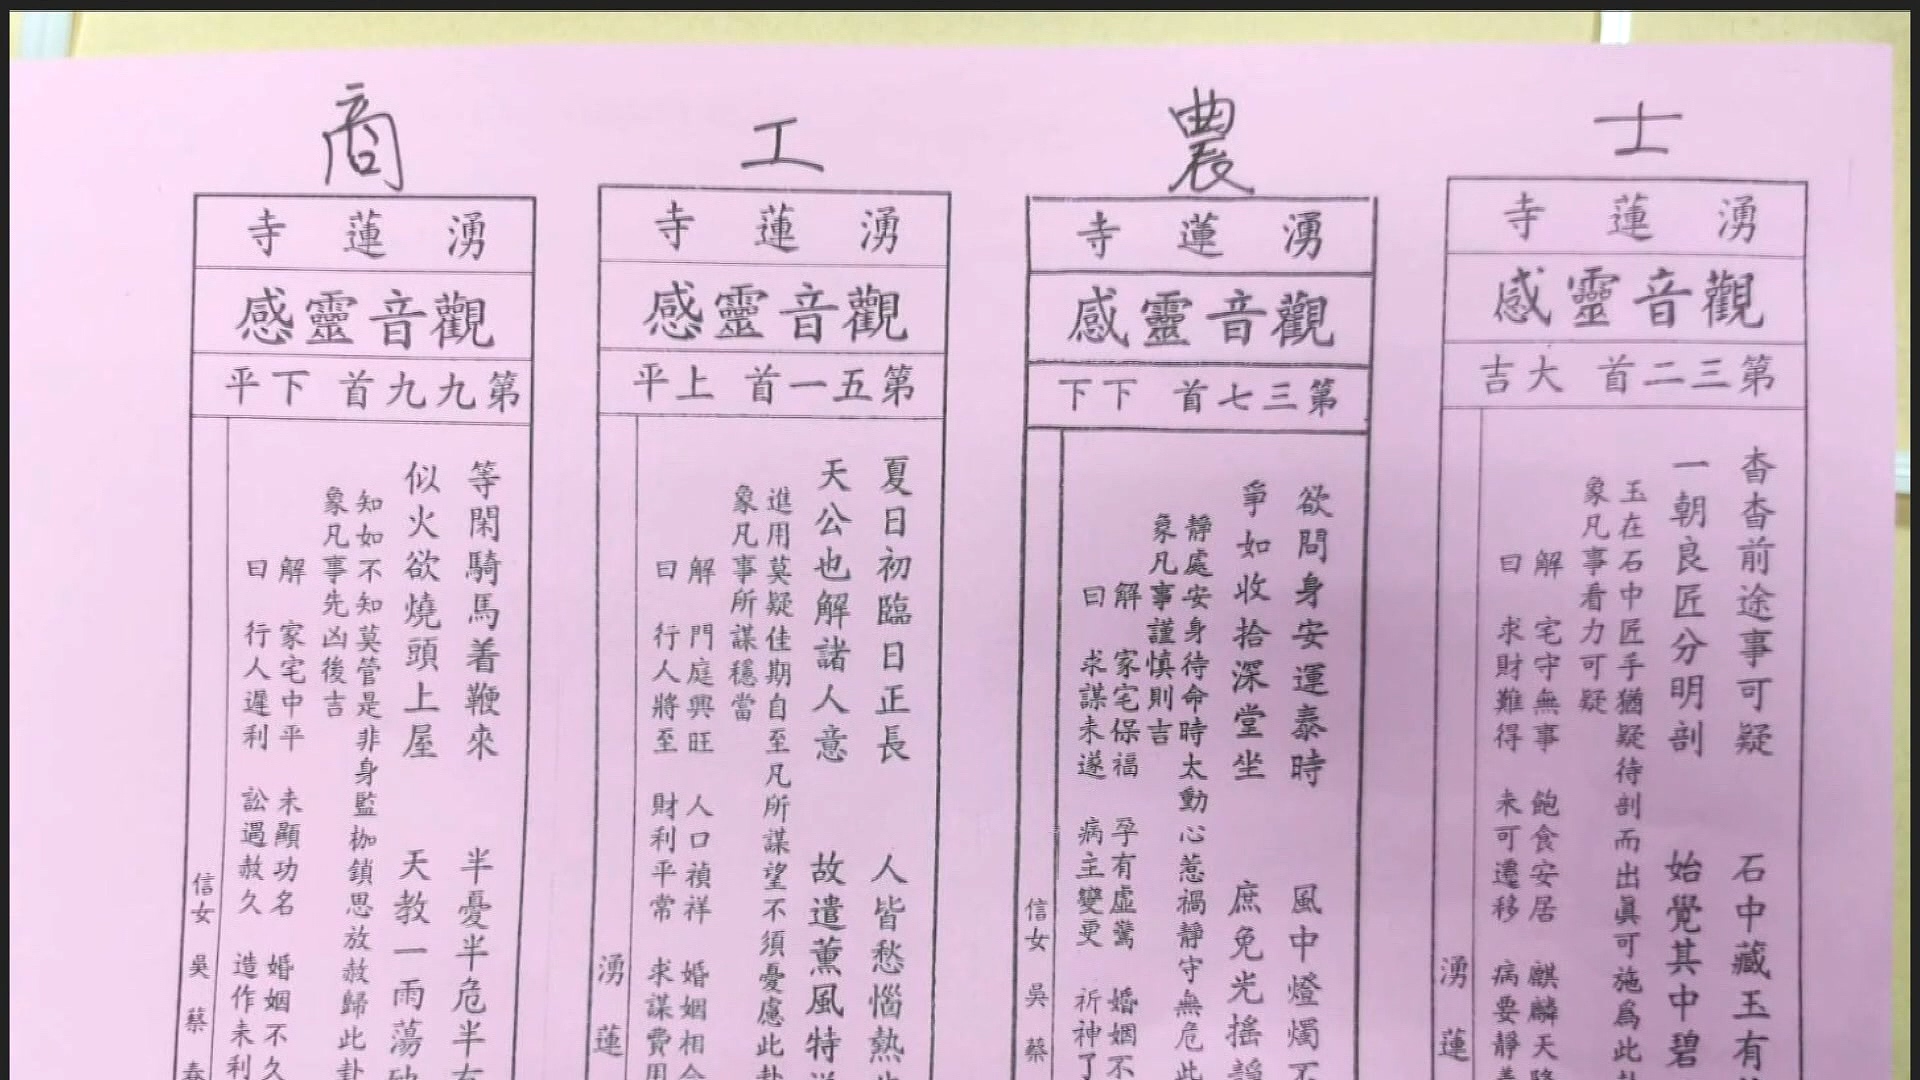 士
湧蓮寺
觀音靈感
第三二首 大吉
杳杳前途事可疑 石中藏玉有
一朝良匠分明剖 始覺其中碧
玉在石中匠手猶疑待剖而出眞可施爲此
象凡事看力可疑
解 宅守無事 飽食安居 麒麟天
曰 求財難得 未可遷移 病要靜
湧蓮
農
湧蓮寺
觀音靈感
第三七首 下下
欲問身安運泰時 風中燈燭不
爭如收拾深堂坐 庶免光搖
靜處安身待命時太動心惹禍靜守無危此
象凡事謹慎則吉
解 家宅保福 孕有虛驚 婚姻不
曰 求謀未遂 病主變更 祈神了
信女 吳蔡
工
湧蓮寺
觀音靈感
第五一首 上平
夏日初臨日正長 人皆愁惱熱
天公也解諸人意 故遣薰風特
進用莫疑佳期自至凡所謀望不須憂慮此卦
象凡事所謀穩當
解 門庭興旺 人口禎祥 婚姻相合
曰 行人將至 財利平常 求謀費用
湧蓮
商
湧蓮寺
觀音靈感
第九九首 下平
等閑騎馬着鞭來 半憂半危半有
似火欲燒頭上屋 天教一雨蕩
知如不知莫管是非身監枷鎖思放赦歸此卦
象凡事先凶後吉
解 家宅中平 未顯功名 婚姻不久
曰 行人遲利 訟過赦久 造作未利
信女 吳蔡春